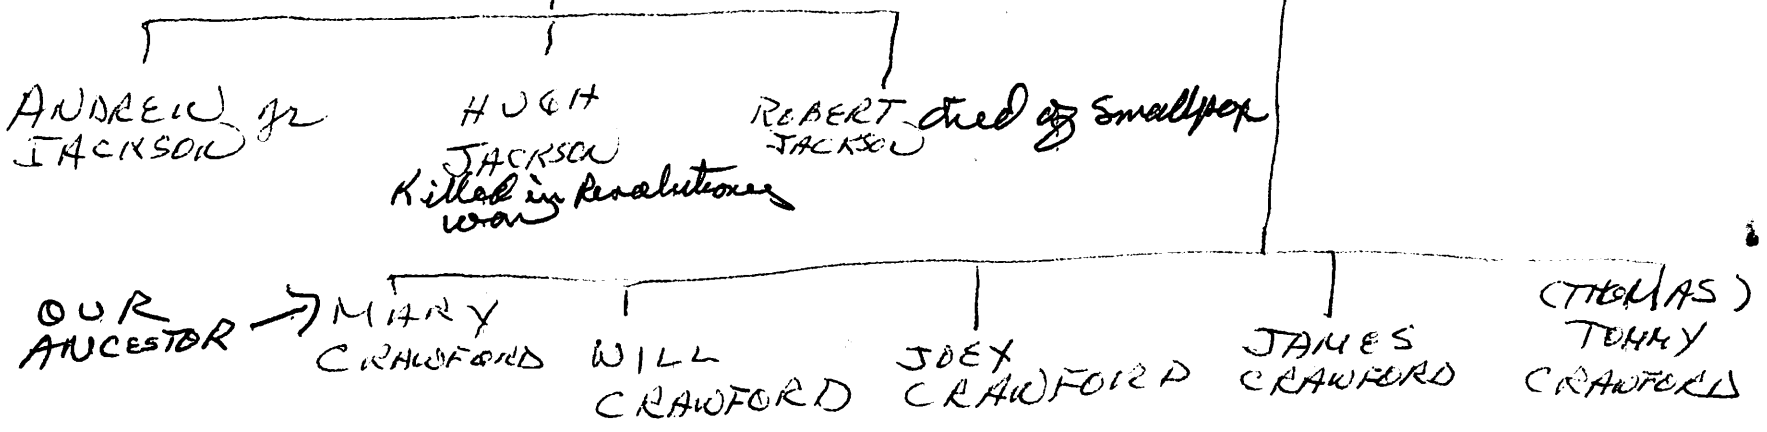 ANDREW Jr
JACKSON
HUGH
JACKSON
Killed in Revolutionary
war
ROBERT died of Smallpox
JACKSON
OUR
ANCESTOR
MARY
CRAWFORD
WILL
CRAWFORD
JOEY
CRAWFORD
JAMES
CRAWFORD
(THOMAS)
TOMMY
CRAWFORD